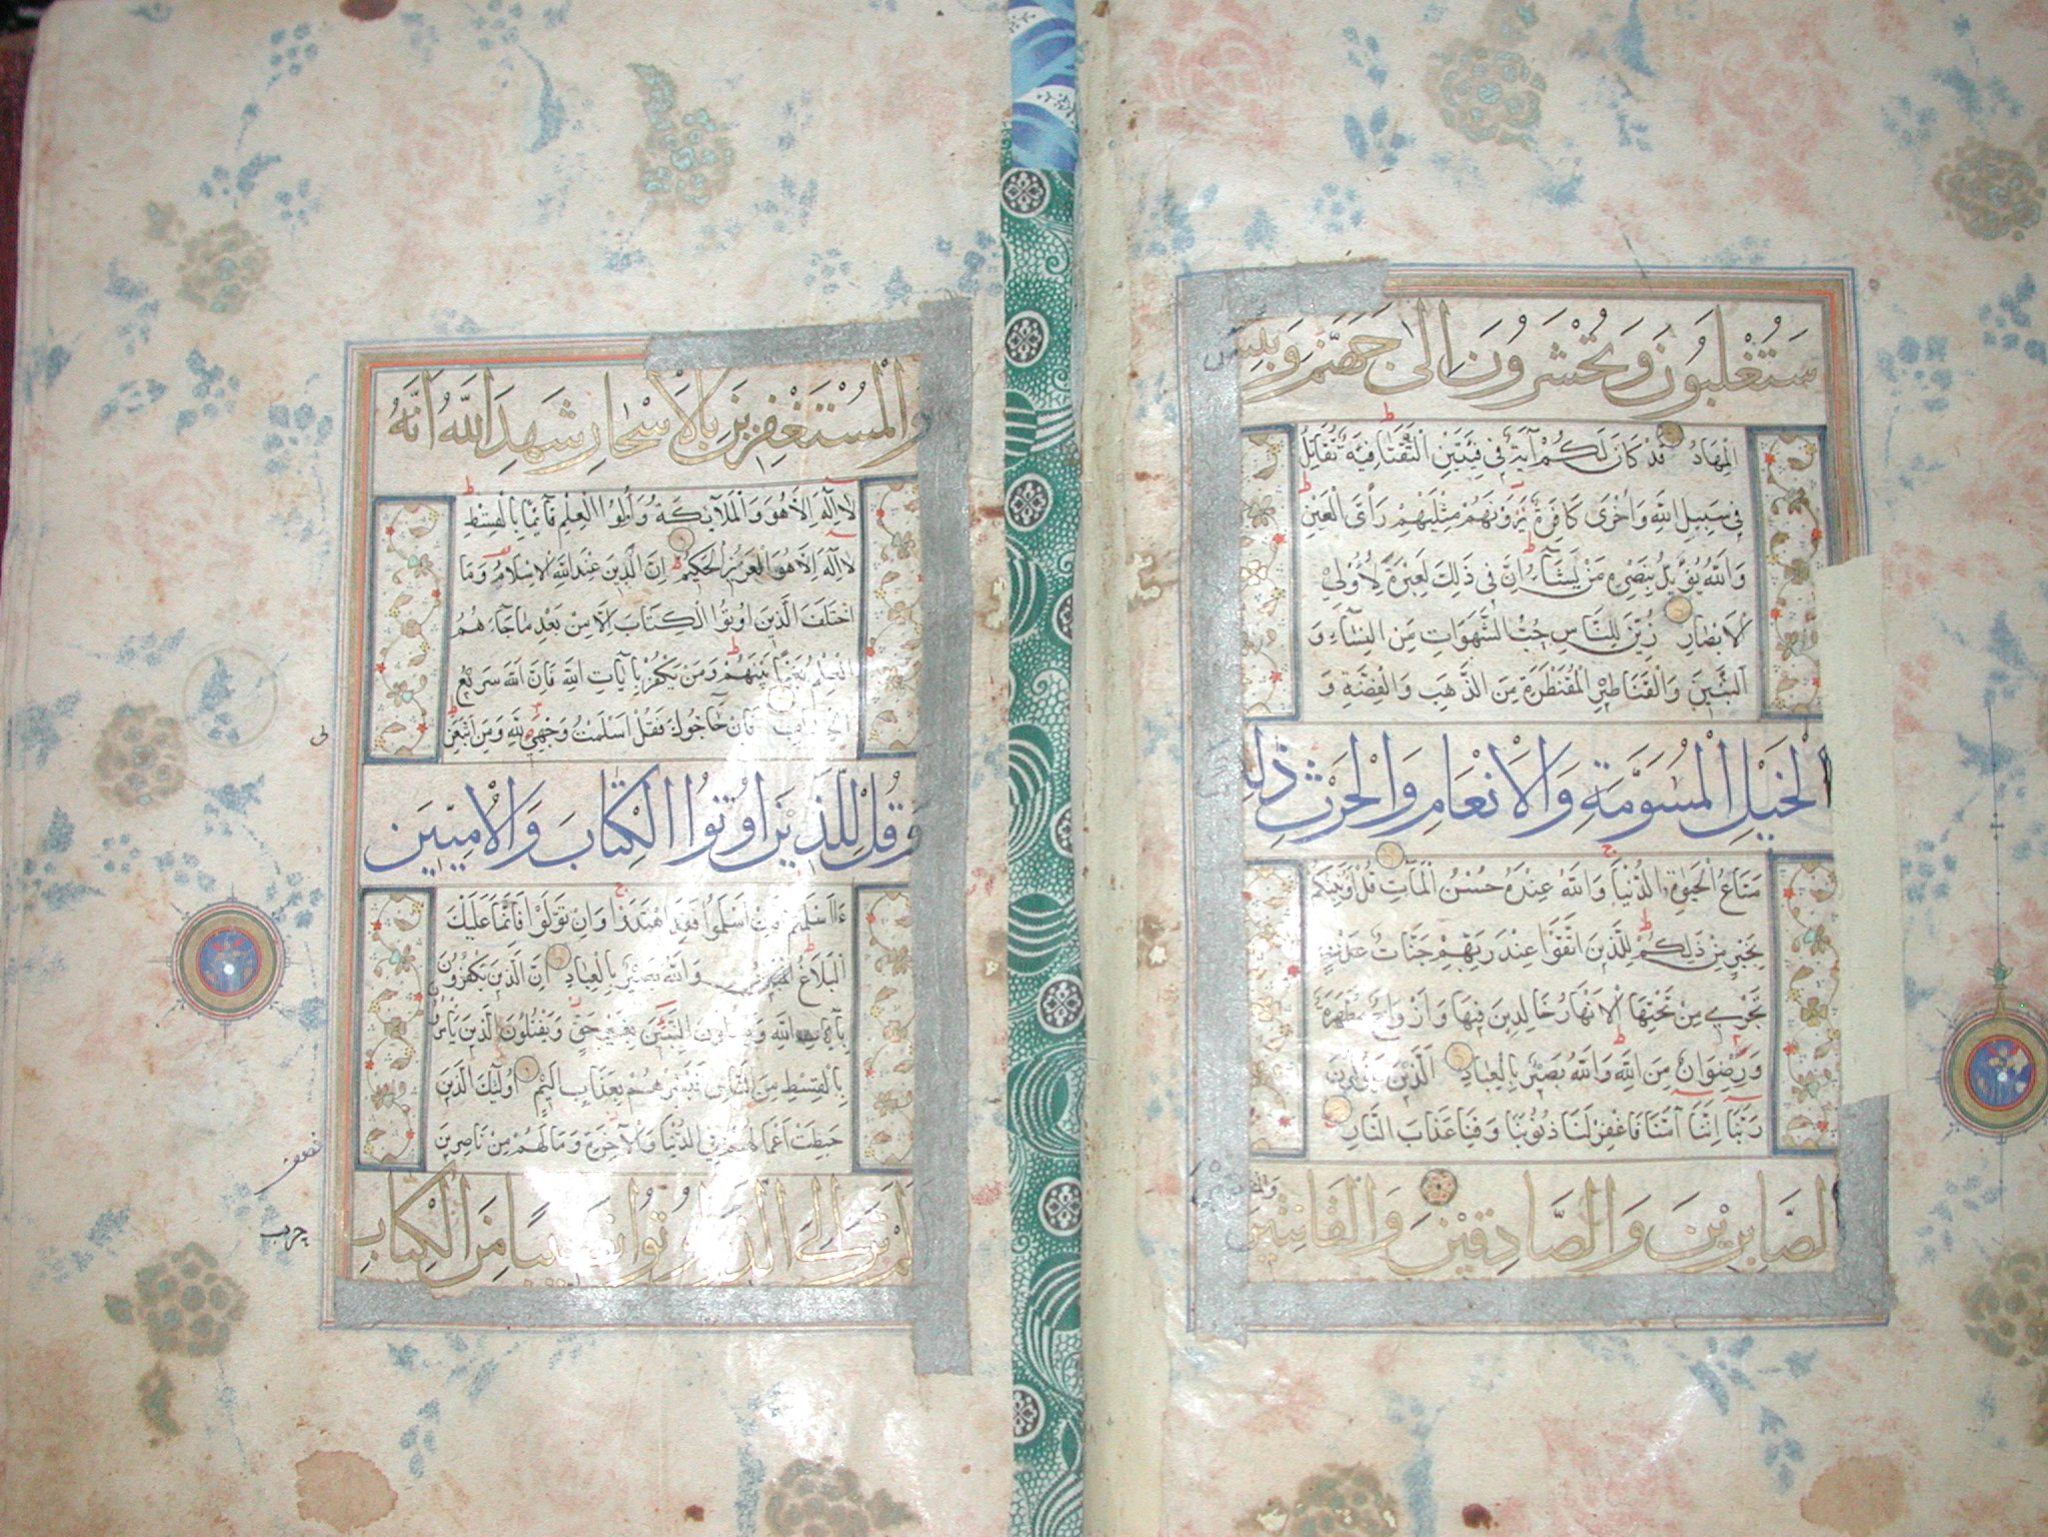 سَتُغْلَبُونَ وَتُحْشَرُونَ اِلىٰ جَهَنَّمَ وَبِئْسَ
الْمِهَادُ قَدْ كَانَ لَكُمْ آيَةٌ فِي فِئَتَيْنِ الْتَقَتَا فِئَةٌ تُقَاتِلُ
فِي سَبِيلِ اللَّهِ وَأُخْرَى كَافِرَةٌ يَرَوْنَهُمْ مِثْلَيْهِمْ رَأْيَ الْعَيْنِ
وَاللَّهُ يُؤَيِّدُ بِنَصْرِهِ مَنْ يَشَآءُ اِنَّ فِي ذَلِكَ لَعِبْرَةً لِاُولِي
الْاَبْصَارِ زُيِّنَ لِلنَّاسِ حُبُّ الشَّهَوَاتِ مِنَ النِّسَآءِ وَ
الْبَنِينَ وَالْقَنَاطِيرِ الْمُقَنْطَرَةِ مِنَ الذَّهَبِ وَالْفِضَّةِ وَ
الْخَيْلِ الْمُسَوَّمَةِ وَالْاَنْعَامِ وَالْحَرْثِ ذٰلِكَ
مَتَاعُ الْحَيٰوةِ الدُّنْيَا وَاللَّهُ عِنْدَهُ حُسْنُ الْمَآبِ قُلْ اَؤُنَبِّئُكُمْ
بِخَيْرٍ مِنْ ذَلِكُمْ لِلَّذِينَ اتَّقَوْا عِنْدَ رَبِّهِمْ جَنَّاتُ
تَجْرِي مِنْ تَحْتِهَا الْاَنْهَارُ خَالِدِينَ فِيهَا وَاَزْوَاجٌ مُطَهَّرَةٌ
وَرِضْوَانٌ مِنَ اللَّهِ وَاللَّهُ بَصِيرٌ بِالْعِبَادِ الَّذِينَ يَقُولُونَ
رَبَّنَا اِنَّنَا آمَنَّا فَاغْفِرْ لَنَا ذُنُوبَنَا وَقِنَا عَذَابَ النَّارِ
الصَّابِرِيْنَ وَالصَّادِقِيْنَ وَالْقَانِتِيْنَ
وَالْمُسْتَغْفِرِيْنَ بِالْاَسْحَارِ شَهِدَ اللَّهُ اَنَّهُ
لَا اِلَهَ اِلَّا هُوَ وَالْمَلَآئِكَةُ وَأُولُوا الْعِلْمِ قَآئِمًا بِالْقِسْطِ
لَا اِلَهَ اِلَّا هُوَ الْعَزِيزُ الْحَكِيمُ اِنَّ الدِّينَ عِنْدَ اللَّهِ الْاِسْلَامُ وَمَا
اخْتَلَفَ الَّذِينَ اُوتُوا الْكِتَابَ اِلَّا مِنْ بَعْدِ مَا جَآءَهُمُ
الْعِلْمُ بَغْيًا بَيْنَهُمْ وَمَنْ يَكْفُرْ بِآيَاتِ اللَّهِ فَاِنَّ اللَّهَ سَرِيعُ
الْحِسَابِ فَاِنْ حَآجُّوكَ فَقُلْ اَسْلَمْتُ وَجْهِيَ لِلَّهِ وَمَنِ اتَّبَعَنِ
وَقُلْ لِلَّذِيْنَ اُوْتُوا الْكِتَابَ وَالْاُمِّيِّيْنَ
ءَاَسْلَمْتُمْ فَاِنْ اَسْلَمُوا فَقَدِ اهْتَدَوْا وَاِنْ تَوَلَّوْا فَاِنَّمَا عَلَيْكَ
الْبَلَاغُ وَاللَّهُ بَصِيرٌ بِالْعِبَادِ اِنَّ الَّذِينَ يَكْفُرُونَ
بِآيَاتِ اللَّهِ وَيَقْتُلُونَ النَّبِيِّينَ بِغَيْرِ حَقٍّ وَيَقْتُلُونَ الَّذِينَ يَأْمُرُونَ
بِالْقِسْطِ مِنَ النَّاسِ فَبَشِّرْهُمْ بِعَذَابٍ اَلِيمٍ اُولَئِكَ الَّذِينَ
حَبِطَتْ اَعْمَالُهُمْ فِي الدُّنْيَا وَالْآخِرَةِ وَمَا لَهُمْ مِنْ نَاصِرِينَ
اَلَمْ تَرَ اِلَى الَّذِيْنَ اُوْتُوا نَصِيْبًا مِنَ الْكِتَابِ
نصف
حزب